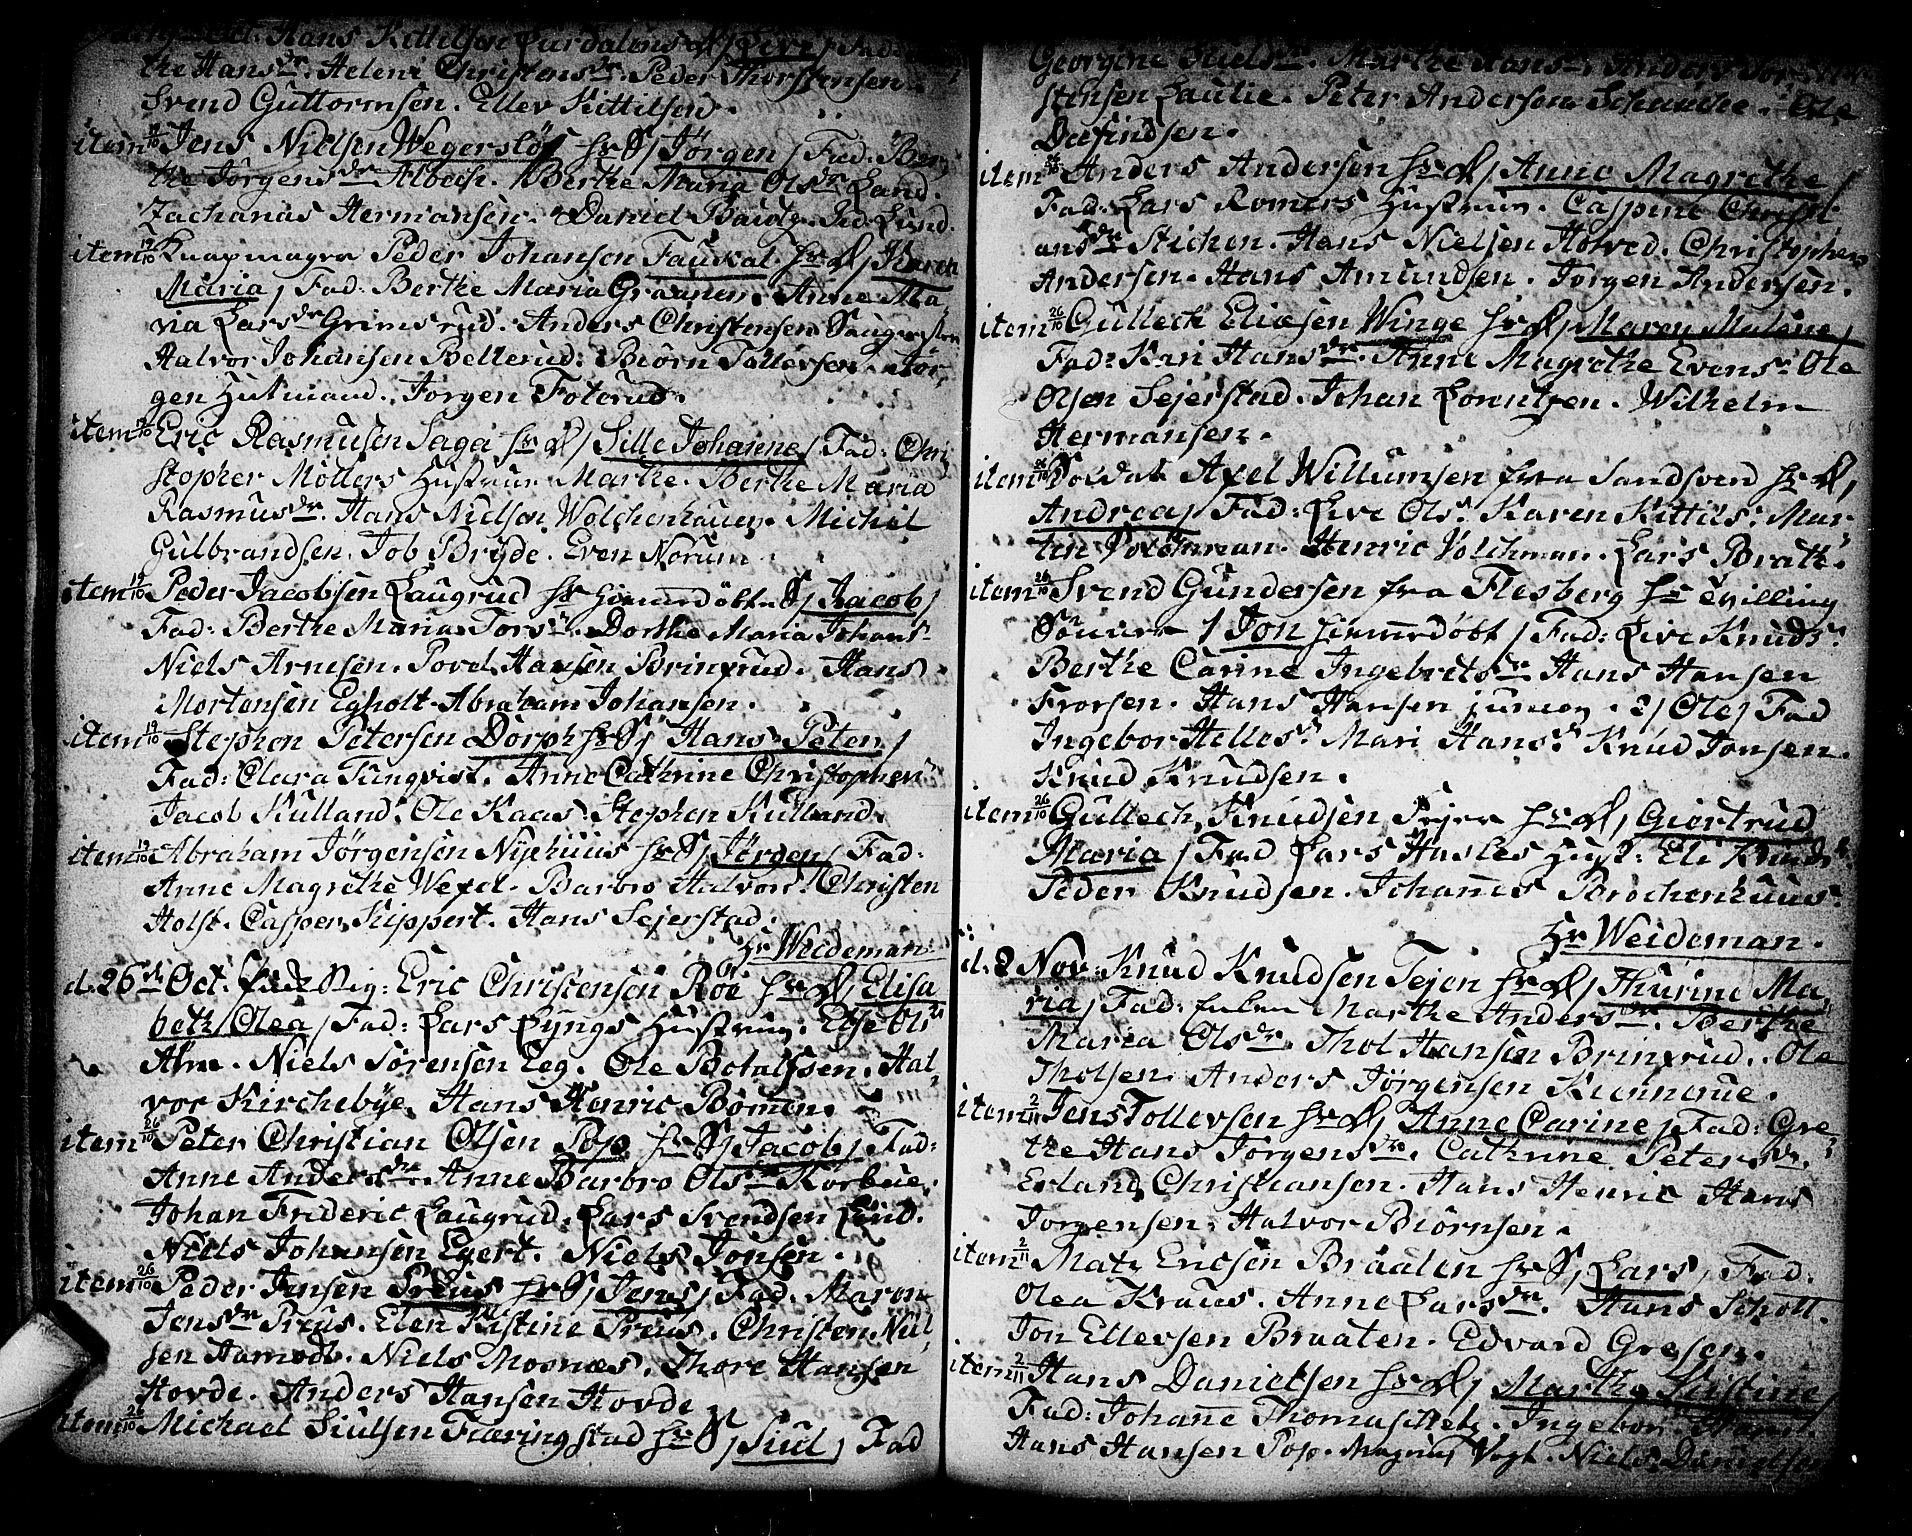 Hans Kittilsen Lurdalens d/ Live / Fad:
the Hansdr. Heleni Christensdr. Peder Thorstensen.
Svend Guttormsen. Ellev Kittilsen.
item 19/10 Jens Nielsen Wegersløf hs S/ Jörgen / Fad: Ber-
the Jörgensdr Albech. Berthe Maria Olsdr Land.
Zacharias Hermansen. Daniel Lund.
item 19/10 Knapmager Peder Johansen Fauskal hs d/ Karen
Maria / Fad: Berthe Maria Graanen. Anne Ma
ria Larsdr Grimsrud. Anders Christensen
Halvor Johansen Bellerud. Biörn Tollefsen. Jör-
gen Hutmand. Jörgen Foterud.
item 19/10 Eric Rasmusen Saga hs d/ Sille Johanne / Fad: Chri
stopher Möllers Hustrue Marthe. Berthe Maria
Rasmusdr. Hans Nielsen Wolchenhauer. Michel
Gulbrandsen. Job Bryde. Even Norum.
item 19/10 Peder Jacobsen Laugrud hs hiemmedöbte S/ Jacob /
Fad: Berthe Maria Torsdr. Dorthe Maria Johans-
Niels Arnesen. Povel Hansen Brinkrud. Hans
Mortensen Egholt. Abraham Johansen.
item 19/10 Stephen Petersen Dorph hs S/ Hans Peter /
Fad: Clara Tunqvist. Anne Cathrine Christophers
Jacob Kulland. Ole Kaas. Stephen Kulland.
item 19/10 Abraham Jörgensen Nyehuus hs S/ Jörgen / Fad:
Anne Magrethe Wexel. Barbro Halvors Christen
Holst. Casper Kippert. Hans Sejerstad.
Hr Weideman.
d. 26de Oct. Eric Christensen Röe hs d/ Elisa
beth Olea / Fad: Lars Lyngs Hustrue. Else Ols
Alm. Niels Sörensen Eeg. Ole Botolfsen. Hal-
vor Kirchebye. Hans Henric Bömen.
item 26/10 Peter Christian Olsen Pop hs S/ Jacob / Fad:
Anne Andersdr. Anne Barbro Olsdr Korbue.
Johan Frideric Laugrud. Lars Svendsen Lind.
Niels Johansen Egert. Niels Jonsen.
item 26/10 Peder Jensen Preus hs S/ Jens / Fad. Maren
Jensdr Preus. Elen Kistine Preus. Christen Niel
sen Hamodt. Niels Mosnæs. Thore Hansen
Hovde. Anders Hansen Hovde
item 26/10 Michael Siulsen Færingstad hs S/ Siul / Fad
Georgine Nielsdr. Marthe Hansdr. Anders
stensen Laulie. Peter Andersen Ole
Dafindsen.
item 26/10 Anders Andersen hs d/ Anne Magrethe /
Fad: Lars Romers Hustrue. Caspine Christi
ansdr Stichen. Hans Nielsen Holved. Christopher
Andersen. Hans Amundsen. Jörgen Andersen.
item 26/10 Gullech Eliæsen Winge hs d/ Maren Malene /
Fad: Kari Hansdr. Anne Magrethe Evens. Ole
Olsen Sejerstad. Johan Wilhelm
Hermansen.
item 26/10 Soldat Axel Willumsen fra Sandsvend hs d/
Andrea / Fad: Live Ols. Karen Kittils. Mar-
tin Henric Volchman. Lars Bratt.
item 26/10 Svend Gundersen fra Flesberg hs tvilling
Sönner 1/ Jon hiemmedöbt / Fad: Live Knuds.
Berthe Carine Ingebretsdr Hans Hansen
Frorsen. Hans Hansen junior. 2/ Ole / Fad
Ingebor Helles. Mari Hans. Knud Jonsen.
Knud Knudsen.
item 26/10 Gullech Knudsen Tejen hs d/ Giertrud
Maria / Fad Lars Hasles Hust: Eli Knuds.
Peder Knudsen. Johannes Brochenhuus.
Hr Weideman.
d. 2 Nov: Knud Knudsen Tejen hs d/ Thurine Ma-
ria / Fad: Marthe Andersdr. Berthe
Maria Olsdr. Thol Hansen Brinkrud. Ole
Tholsen. Anders Jörgensen Kiennerue.
item 2/11 Jens Tollevsen hs d/ Anne Carine / Fad: Gre-
the Hans Jörgensdr. Cathrine Petersdr.
Erland Christiansen. Hans Henric Hans
Jörgensen. Halvor Biörnsen.
item 2/11 Matz Ericsen Braaten hs S/ Lars / Fad:
Olea Kraus. Anne Larsdr. Hans Scholt.
Jon Ellevsen Braaten. Edvard Gresen.
item 2/11 Hans Danielsen hs d/ Marthe Kistine /
Fad: Johane Thomas Ingebor Hans
Hans Hansen Pop. Magnus Vogt. Niels Danielsen